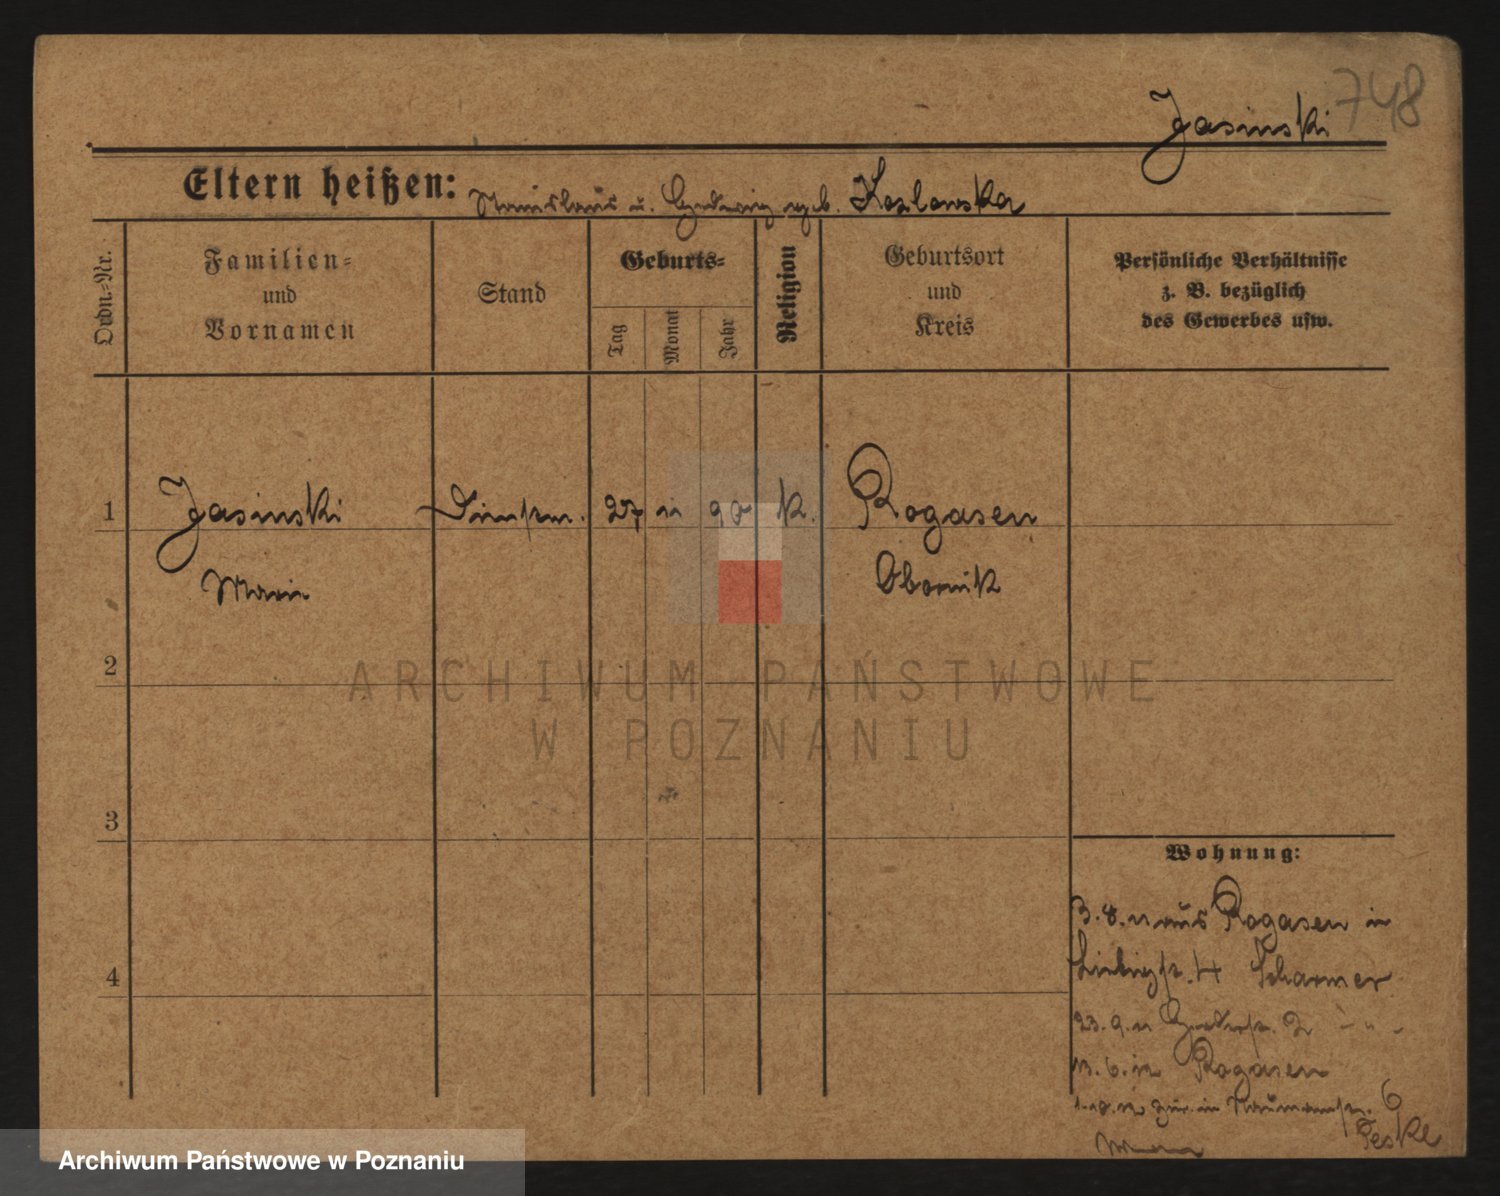 748
Jasinski
Eltern heißen: Stanislaus u. Hedwig geb. Kozlowska
Ordn.-Nr.
Familien-
und
Vornamen
Stand
Geburts-
Tag
Monat
Jahr
Religion
Geburtsort
und
Kreis
Persönliche Verhältnisse
z. B. bezüglich
des Gewerbes usw.
1 Jasinski 27 90 k. Rogasen
Marie Obornik
2
ARCHIWUM PAŃSTWOWE
W POZNANIU
3
Wohnung:
3.8.11 aus Rogasen in
Liebigstr. 4 Scharmer
4
23.9.11 2 - " -
Rogasen
in Naumannstr. 6
Feske
Archiwum Państwowe w Poznaniu